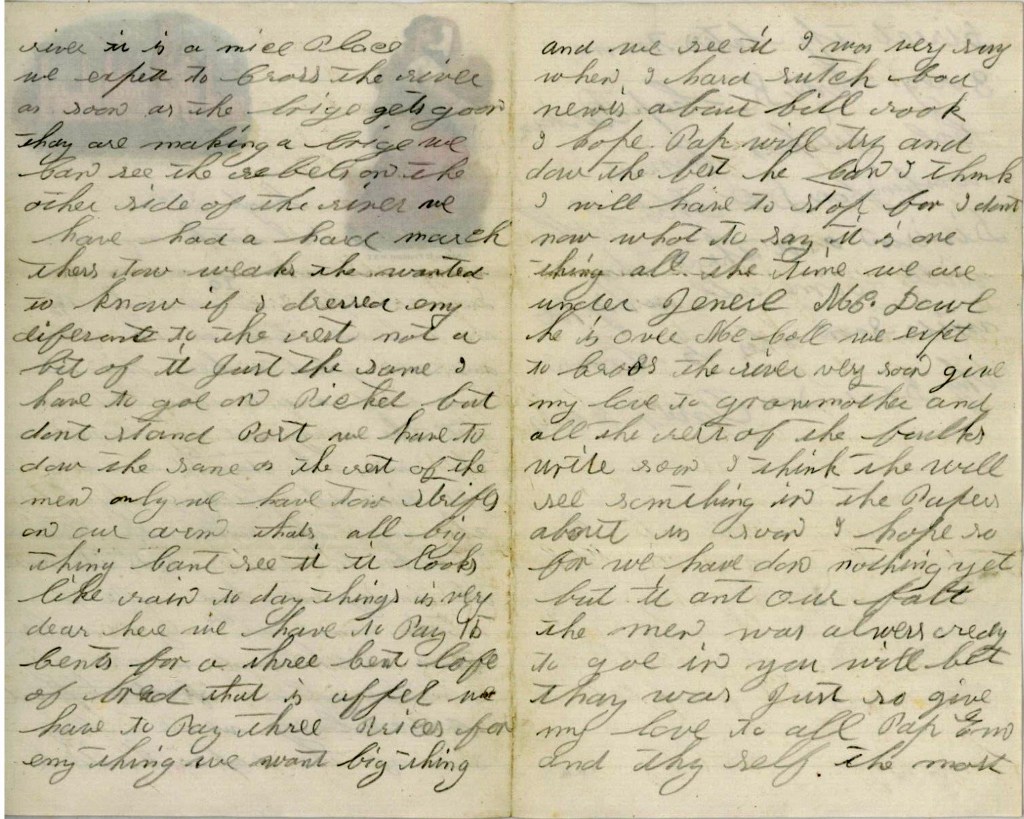 river it is a nice Place
we expett to Cross the river
as soon as the brige gets goon
thay are making a brige we
Can see the rebels on the
other side of the river we
have had a hard march
thers tow weaks the wanted
to know if I dressed eny
diferant to the rest not a
bit of it Just the same I
have to goe on Picket but
dont stand Post we have to
dow the same as the rest of the
men only we have tow strifs
on our arm thats all big
thing Cant see it it looks
like rain to day things is very
dear here we have to Pay 15
Cents for a three Cent lofe
of bred that is uffel we
have to Pay three Prices for
eny thing we want big thing
and we see it I was very sory
when I hard sutch bad
newis about bill rook
I hope Pap will try and
dow the best he Can I think
I will have to stop for I dont
now what to say it is one
thing all the time we are
under Jenerl Mc. Dowl
he is over Mc Coll we expt
to Cross the river very soon give
my love to granmother and
all the rest of the foulks
write soon I think the will
see somthing in the Papers
about us soon I hope so
for we have don nothing yet
but it ant our falt
the men was alwers redy
to goe in you will bet
thay was Just so give
my love to all Pap Em
and thy self. the most